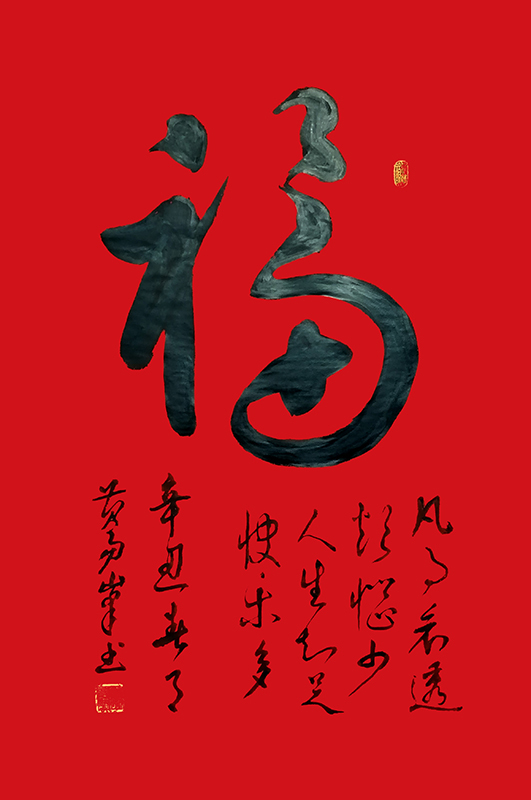 福
凡事看透
烦恼少
人生知足
快乐多
辛丑春月
黄易峯书